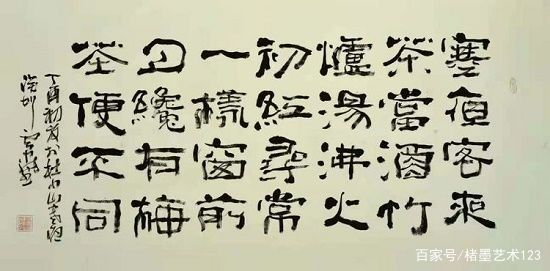 寒夜客來
茶當酒竹
爐湯沸火
初紅尋常
一樣窗前
月纔有梅
花便不同
丁酉初夏
深圳
百家号/楮墨艺术123